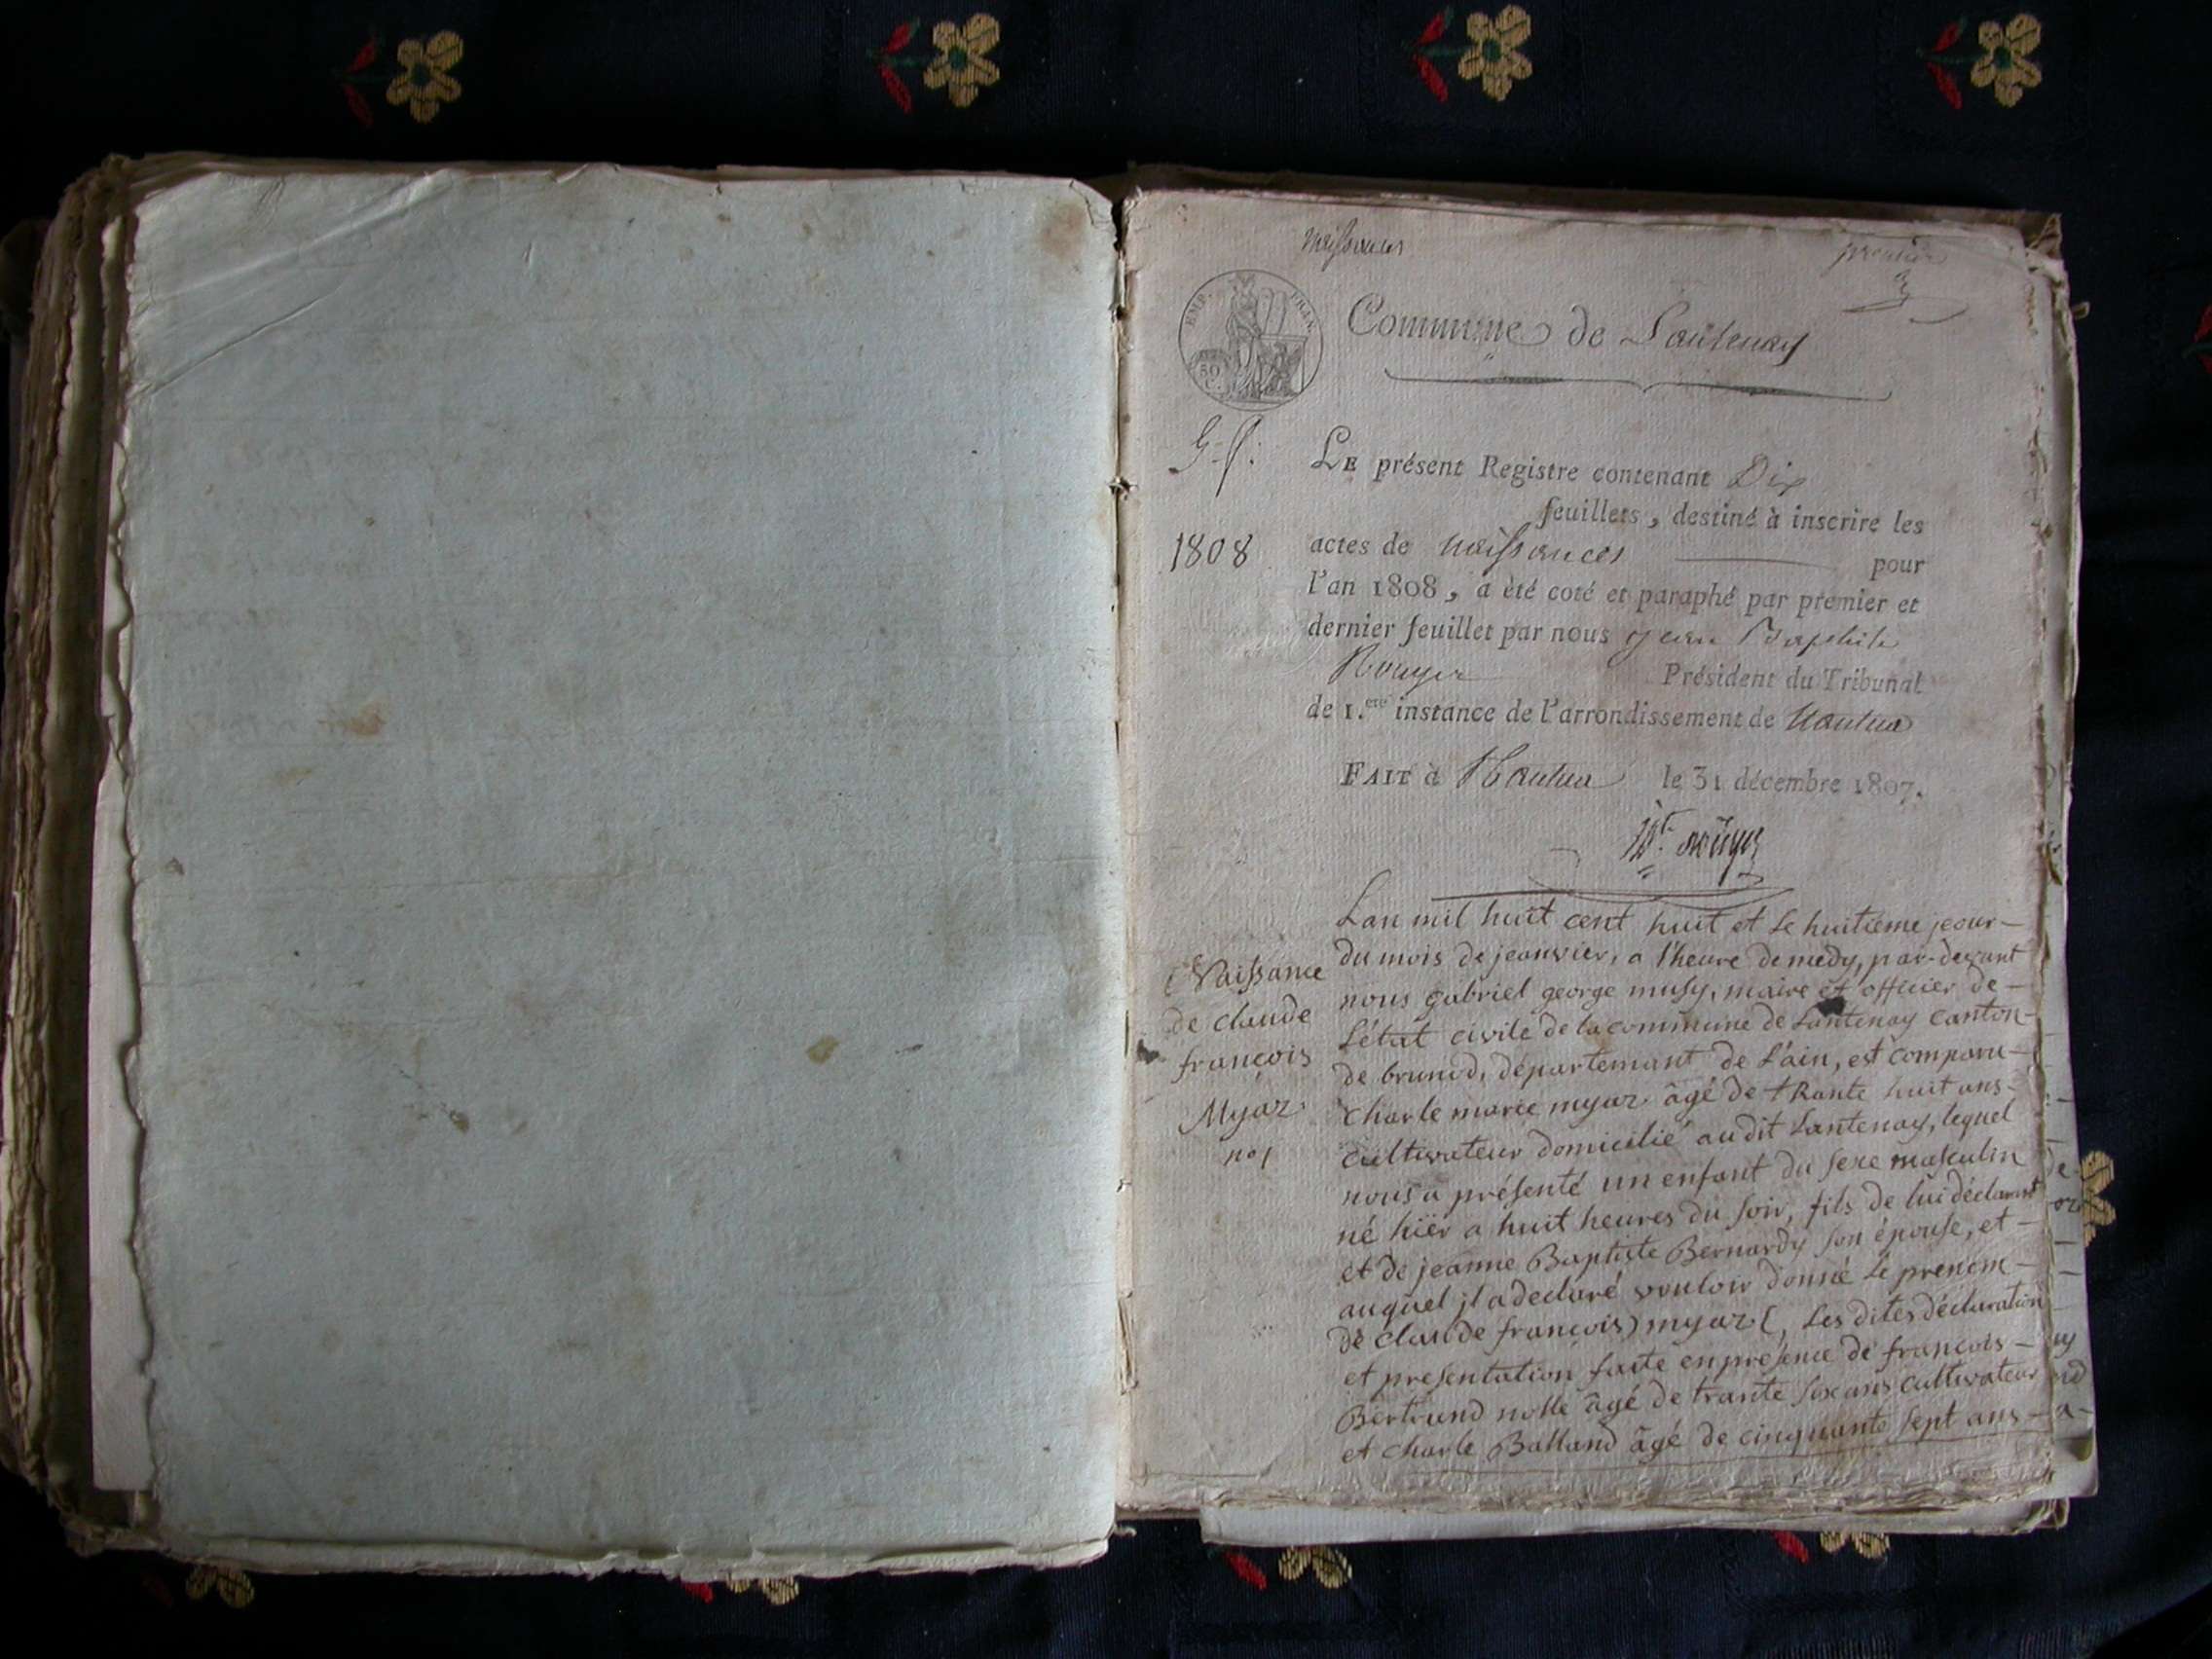 naissances
premier
EMP. FRAN.
50
C.
Commune de Lantenay
LE présent Registre contenant Dix
feuillets, destiné à inscrire les
1808
actes de naissances pour
l'an 1808, a été coté et paraphé par premier et
dernier feuillet par nous jean Baptiste
Rouyer Président du Tribunal
de 1.ere instance de l'arrondissement de Nantua
FAIT à Nantua le 31 décembre 1807.
Bte. rouyer
Naissance
de claude
françois
Myaz
no 1
Lan mil huit cent huit et Le huitieme jeour-
du mois de jeanvier, a l'heure de medy, par-devant
nous gabriel george musy, maire et officier de-
L'état civile de la commune de Lantenay canton-
de brunod, départemant de L'ain, est comparu-
charle marie myaz âgé de tRante huit ans-
cultivateur domicilié audit Lantenay, lequel
nous a présenté un enfant du sexe masculin
né hiër a huit heures du soir, fils de lui déclarant
et de jeanne Baptiste Bernardy son épouse, et-
auquel jl a declaré vouloir donné Le prenom-
de claude françois) myaz (, Les dites déclaration
et presentation faite en presence de françois-
Bertrand nolle âgé de trante six ans cultivateur
et charle Balland âgé de cinquante sept ans-